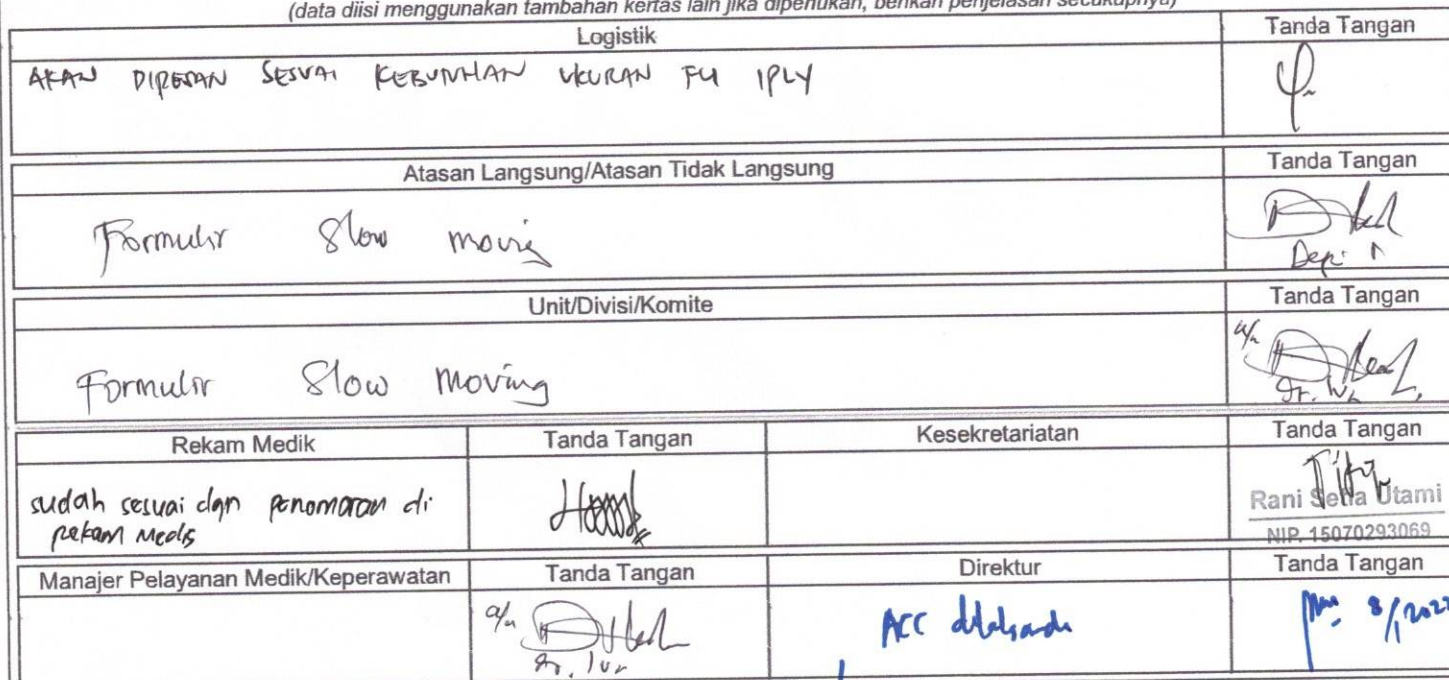 (data diisi menggunakan tambahan kertas lain jika diperlukan, berikan penjelasan secukupnya)
Logistik Tanda Tangan
AKAN DIPESAN SESUAI KEBUTUHAN UKURAN F4 1PLY
Atasan Langsung/Atasan Tidak Langsung Tanda Tangan
Formulir Slow moving
Unit/Divisi/Komite Tanda Tangan
a/n
Formulir Slow Moving
Rekam Medik Tanda Tangan Kesekretariatan Tanda Tangan
sudah sesuai dgn penomoran di
rekam Medis
Rani Setia Utami
NIP. 15070293069
Manajer Pelayanan Medik/Keperawatan Tanda Tangan Direktur Tanda Tangan
a/n
ACC